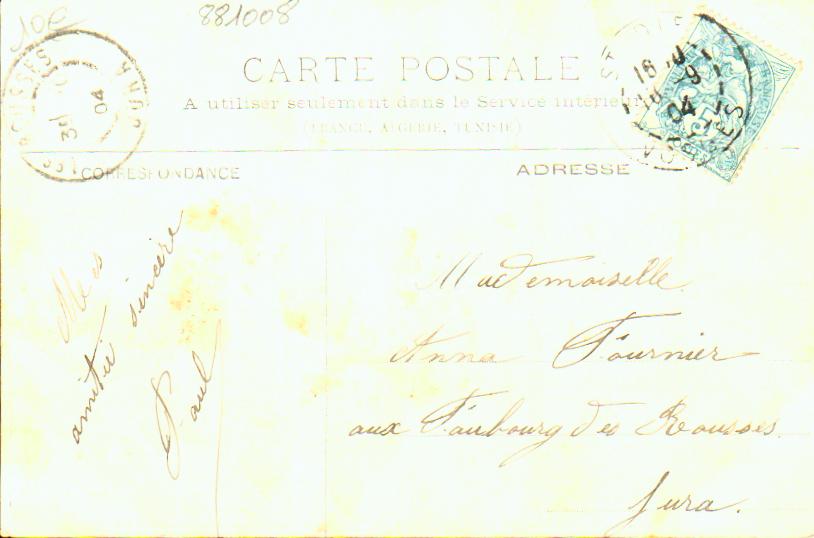 10€
881008
CARTE POSTALE
A utiliser seulement dans le Service intérieur
(FRANCE, ALGÉRIE, TUNISIE)
CORRESPONDANCE
ADRESSE
ROUSSES
JURA
04
18
9
04
VOSGES
Mes
amitié sincère
Paul
Mademoiselle
Anna Fournier
aux Faubourg des Rousses
Jura.